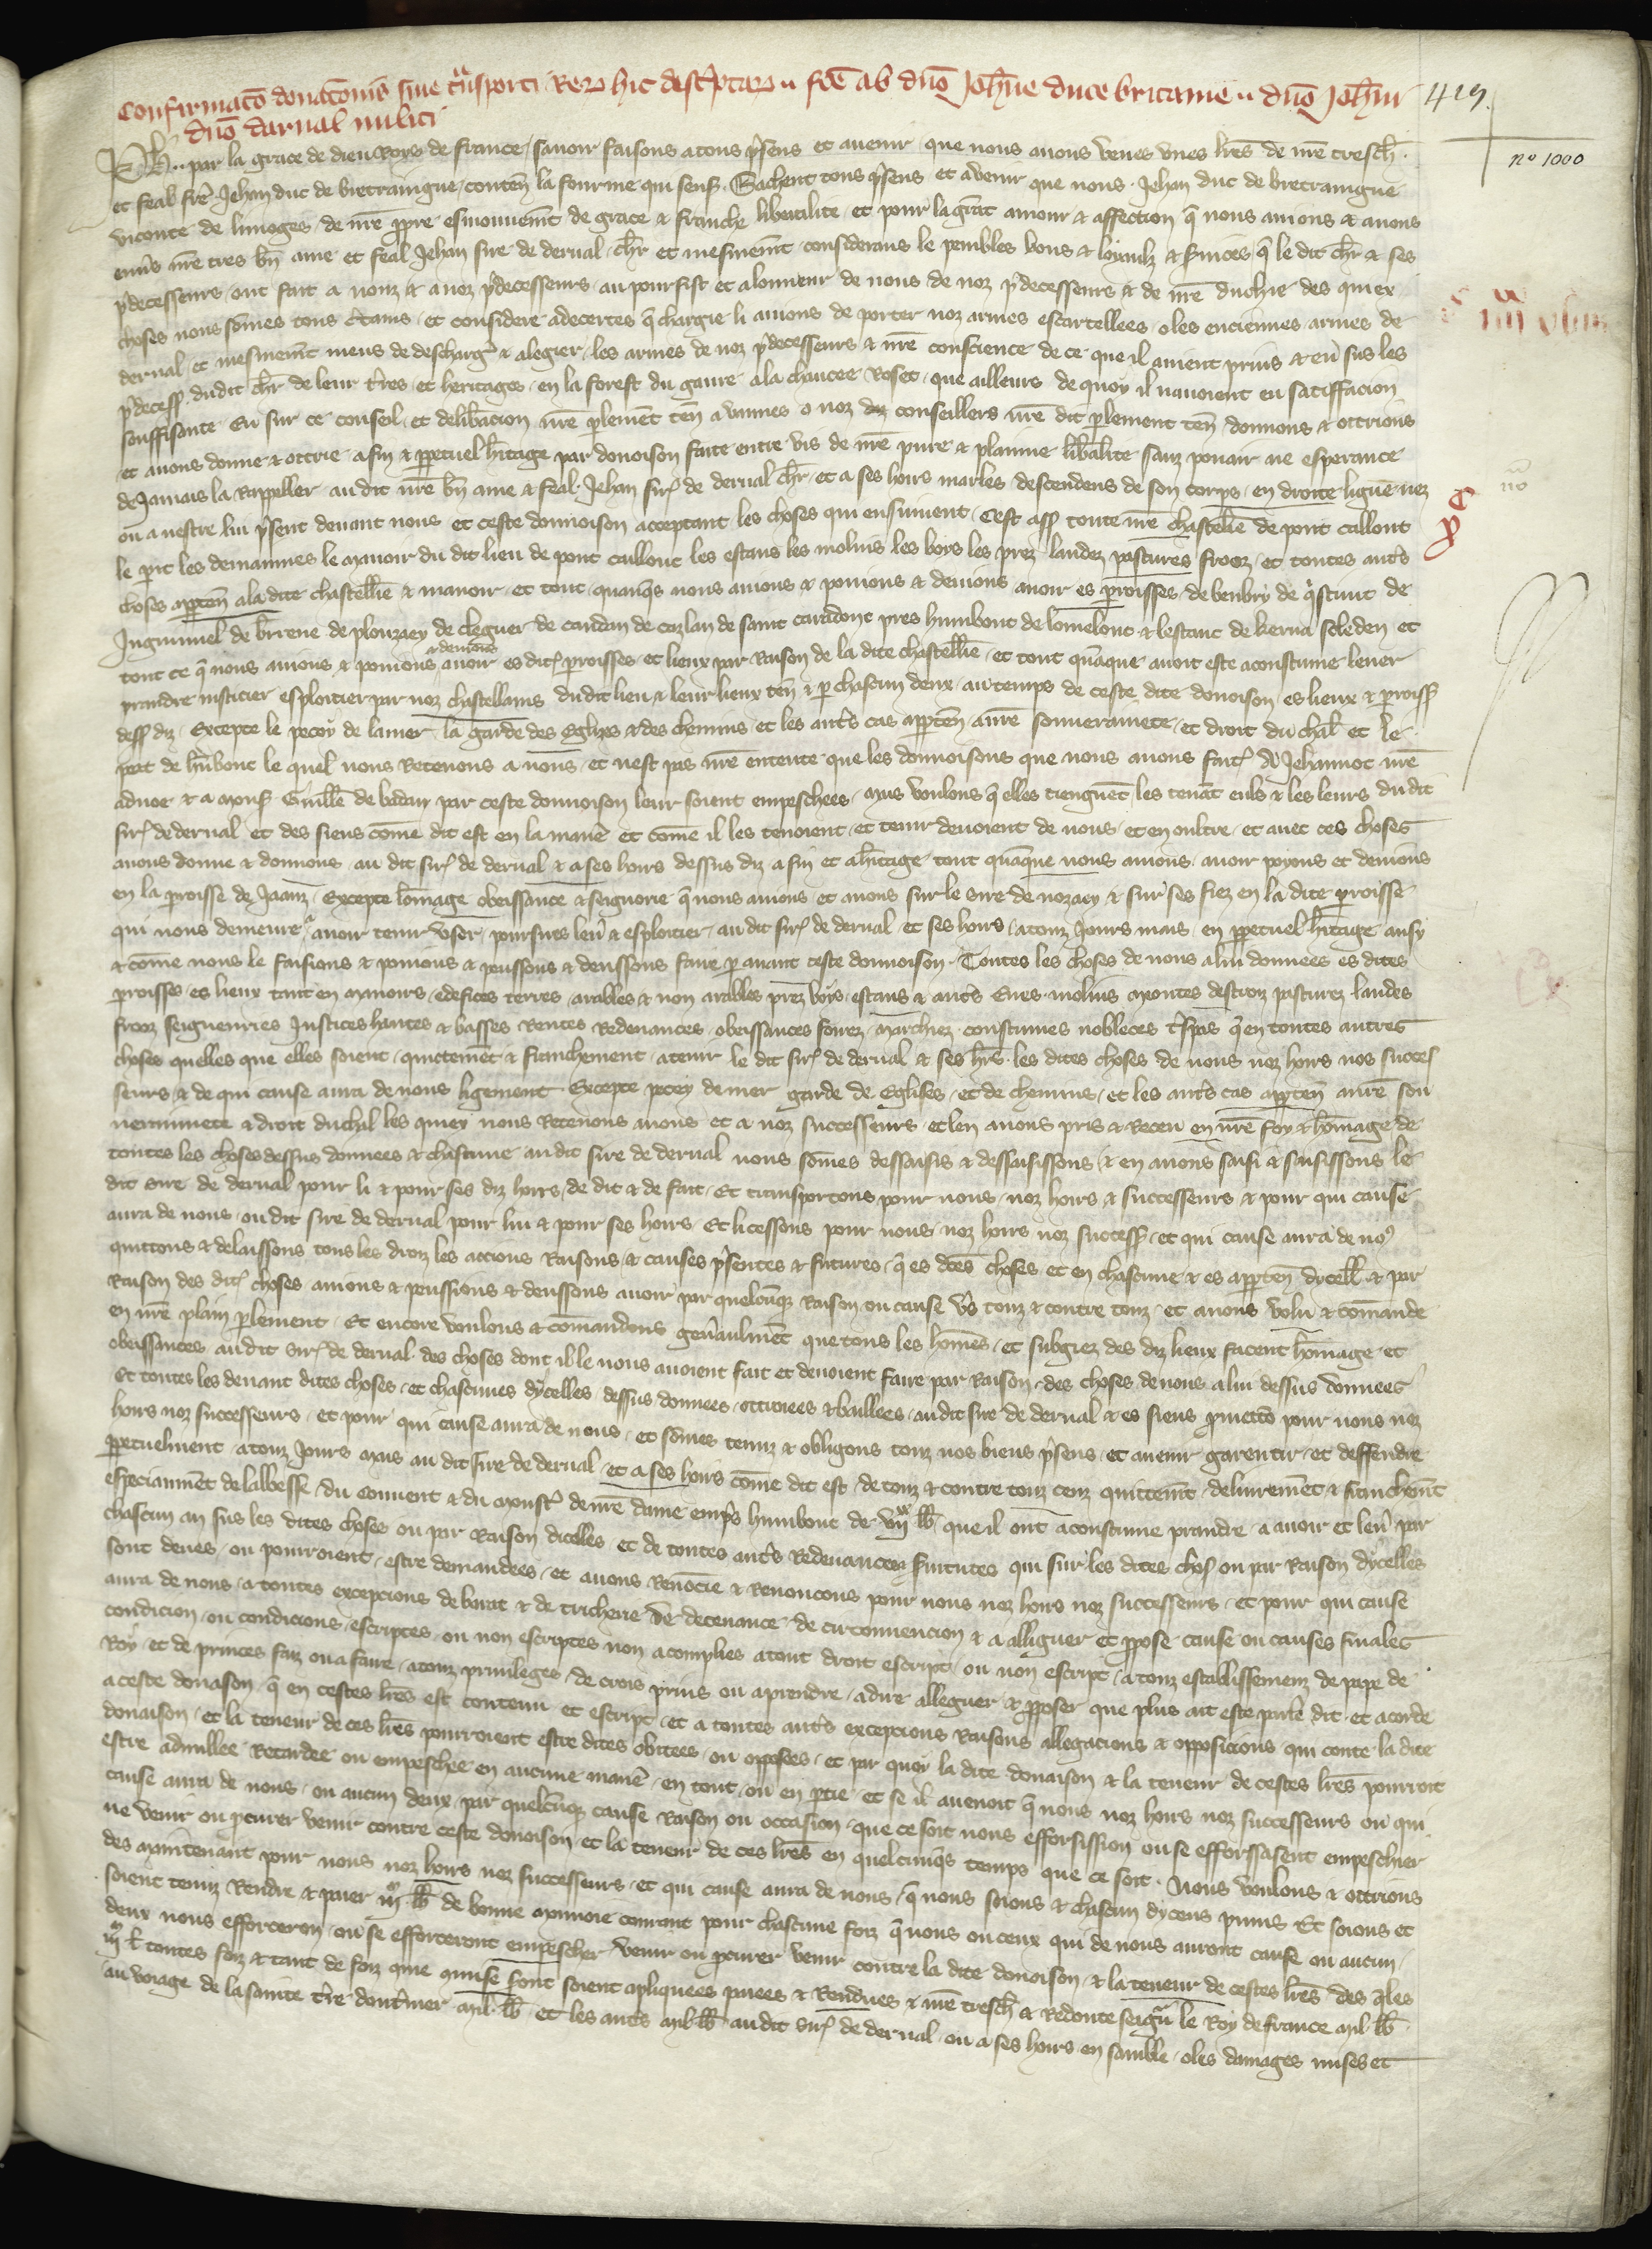 Confirmacõ donacõnis sive t̃nsporti Reꝝ hic desc̃ptaꝝ .. fc̃e ab dño Joh̃ne duce britanie .. dño Joh̃ni
dño darval militi
419.
nº 1000
Ph̃. par la grace de dieu Roys de france, savoir faisons a tous p̃sens et avenir que nous avons veues unes lr̃es de nr̃e tresch̃.
et feal fr̃e Jehan duc de bretaingne, conteñ la fourme qui sens̃. Sachent tous p̃sens et avenir que nous Jehan duc de bretaingne
viconte de limoges, de nr̃e ꝓpre esmouvem̃t de grace et franche liberalite, et pour la grãt amour et affection q̃ nous avions et avons
envs̃ nr̃e tres bñ ame et feal Jehan sire de derval, ch̃r et mesmem̃t considerans le penibles bons et loyaulz et s̃vices q̃ le dit ch̃r et ses
p̃decesseurs ont fait a nouz et a noz p̃decesseurs au pourfist et alonneur de nous, de noz p̃decesseurs et de nr̃e duchie des quiex
choses nous sõmes tous c̃tains, et considere adecertes q̃ chargie li avions de porter noz armes escartellees o les enciennes armes de
derval, et mesmem̃t meus de descharg̃ et alegier les armes de noz p̃decesseurs et nr̃e conscience de ce que il avient prins et eu sus les
p̃decess̃. dudit ch̃r de leur t̃res et heritages en la forest du gavre a la chaucee Roset que ailleurs de quoy il navoient eu satiffacion
souffisante Eu sur ce conseil et delib̃acion nr̃e ꝑlement teñ a vannes o noz diz conseillers nr̃e dit ꝑlement teñ donnons et ottrions
et avons donne et ottrie a fin et ꝑpetuel h̃itage par donoison faite entre vis de nr̃e pure et planne lib̃alite sanz pouair ne esperance
de Jamais la Rappeller au dit nr̃e bñ ame et feal Jehan sir̃ de derval ch̃r et a ses hoirs marles descendens de son corps en droite ligne nez
ou a nestre lui p̃sent devant nous et ceste donnoison acceptant les choses qui ensuivent, Cest ass̃ toute nr̃e chastelle̍ de pont callouc
le parc les demainnes le manoir du dit lieu de pont callouc les estans les molins les boys les prez landez pastures frooz et toutes autr̃s
choses apꝑteñ a la dite chastell̃ie et manoir, et tout quanq̃s nous avions et povions et devions avoir es ꝑroisses de benbry de q̃stinic de
Inguiniel de brrene de plouzaey de cleguer de caudan de cazlan de saint caradouc pres hamibont de lomelouc et lestanc de kerna soleden et
tout ce q̃ nous avions et povions et devions avoir es dit̃ ꝑroisses et lieux par Raison de la dite chastell̃ie et tout quãque avoit este acoustume lever
prandre iusticier esploitier par noz chastellains dudit lieu et leur lieux teñ et ꝑ chascun deux au temps de ceste dite donoison es lieux et ꝑroiss̃
dess̃ diz Excepte le peczoy de la mer la garde des Eglises et des chemins et les autr̃s cas apꝑteñ a nr̃e souverainete et droit duchal et le
port de h̃nbont le quel nous Retenons a nous et nest pas nr̃e entente que les donnoisons que nous avons fait̃ a Jehannot nr̃e
advoe et a mons̃ Guill̃e de baden par ceste donnoison leur soient empeschees, Mais voulons q̃ elles tiengnẽt, les tenãt euls et les leurs dudit
sir̃ de derval et des siens cõme dit est en la mañe et cõme il les tenoient et tenir devoient de nous et en oultre et avec ces choses
avons donne et donnons au dit sir̃ de derval et a ses hoirs dessus diz a fin et a h̃itage tout quãque nous avions, avoir poyons et devions
en la ꝑroisse de Jaanz Excepte lõmage obeissance et seignorie q̃ nous avions et avons sur le sire de nozaey et sur ses fiez en la dite ꝑroisse
qui nous demeure a avoir tenir user poursures lev̾ et esploitier au dit sir̃ de derval et ses hoirs a touz Jours mais en ꝑpetuel h̃itage ausy
et cõme nous le faisions et povions et peussons et deussons faire ꝑ avant ceste donnoison. Toutes les choses de nous a lui donnees es dites
ꝑroisses es lieux tant en manoirs edefices terres arables et non arables prez boys estans et autr̃s Eues molins Montes destroiz pasturez landes
frooz seigneuries Justices hautes et basses Rentes Redevances obeissances foirez Marchiez coustumes nobleces t̃spas q̃ en toutes autres
choses quelles que elles soient quictemẽt et franchement a tenir le dit sir̃ de derval et ses h̃rs les dites choses de nous noz hoirs nos succes̃
seurs et de qui cause aura de nous ligement Excepte peczoy de mer garde de Eglises et de chemins et les autr̃s cas apꝑteñ a nr̃e sou
verainnete et droit duchal les quiex nous Retenons a nous et a noz successeurs et len avons pris et Receu en nr̃e foy et hõmage de
toutes les choses dessus donnees et chascune au dit sire de derval nous sõmes dessaisis et dessaisissons et en avons saisi et saisissons le
dit sire de derval pour li et pour ses diz hoirs de dit et de fait Et transportons pour nous noz hoirs et successeurs et pour qui cause
aura de nous ou dit sire de derval pour lui et pour ses hoirs Et li cessons pour nous noz hoirs noz success̃ et qui cause aura de noꝰ
quittons et delaissons tous les droiz les accions Raisons et causes p̃sentes et futures q̃ es dc̃es choses et en chascune et es apꝑteñ dicell̃ et par
Raison des dit̃ choses avions et peussions et deussons avoir par quelcũq̃ Raison ou cause vs̃ touz et contre touz et avons volu et cõmande
en nr̃e plain ꝑlement, Et encore voulons et cõmandons gen̾aulmẽt que tous les hõmes et subgiez des diz lieux facent hõmage et
obeissances au dit sir̃ de derval des choses dont il le nous avoient fait et devoient faire par Raison des choses de nous a lui dessus donnees
Et toutes les devant dites choses et chascunes dycelles dessus donnees ottriees et baillees au dit sire de derval et es siens ꝓmettõ pour nous noz
hoirs noz successeurs et pour qui cause aura de nous, et sõmes tenuz et obligons touz nos biens p̃sens et avenir garentir et deffendre
ꝑpetuelment a touz Jours mais au dit sire de derval et a ses hoirs cõme dit est de touz et contre touz ceuz quittem̃t delivremẽt et franchem̃t
especiaumẽt de labbesse du couvent et du monst̾ de nr̃e dame emp̃s hanibont de viixx lb̃ que il ont acoustume prandre a avoir et lev̾ par
chascun an sus les dites choses ou par Raison dicelles et de toutes autr̃s Redevances s̃vitutes qui sur les dites chos̃ ou par Raison dycelles
sont deues ou pourroient estre demandees et avons Renõcie et Renoncons pour nous noz hoirs noz successeurs et pour qui cause
aura de nous a toutes excepcions de barat et de tricherie de decevance de circonvencion et a alliguer et ꝓpose cause ou causes finales
condicion ou condicions escriptes ou non escriptes non acomplies a tout droit escript ou non escript a touz establissemenz de pape de
Roy et de princes faiz ou a faire a touz privileges de crois prins ou a prendre a dire alleguer et ꝓposer que plus ait este parle dit et acorde
a ceste donaison q̃ en cestes lr̃es est contenu et escript et a toutes autr̃s excepcions Raisons allegacions et opposicions qui contre la dite
donaison et la teneur de ces lr̃es pourroient estre dites obicees ou opposees et par quoy la dite donaison et la teneur de cestes lr̃es pourroit
estre adnullee Retardee ou empeschee en aucune mañe en tout ou en ꝑtie et se il avenoit q̃ nous noz hoirs noz successeurs ou qui
cause aura de nous ou aucun deux par quelcũq̃ cause Raison ou occasion que ce soit nous efforsission ou se efforssasent empeschier
ne venir ou ꝓcurer venir contre ceste donoison et la teneur de ces lr̃es en quelcunq̃s temps que ce soit. Nous voulons et ottrions
des maintenant pour nous noz hoirs noz successeurs et qui cause aura de nous q̃ nous soions et chascun dyceus punis Et soions et
soient tenuz Rendre et paier iim lb̃ de bonne monnoie courant pour chascune foiz q̃ nous ou ceux qui de nous auront cause ou aucun
deux nous efforceron ou se efforceront empescher venir ou ꝓcurer venir contre la dite donoison et la teneur de cestes lr̃es des q̃les
iim l̃ toutes foiz et tant de foiz que qmise seront soient apliquees paiees et Rendues a nr̃e tresch̃ et Redoute seig̃nr le Roy de france mil lb̃
au voiage de la sainte t̃re dout̃mer Mil lb̃ et les autr̃s Mil lb̃ au dit sir̃ de derval ou a ses hoirs en samble o les damages mises et